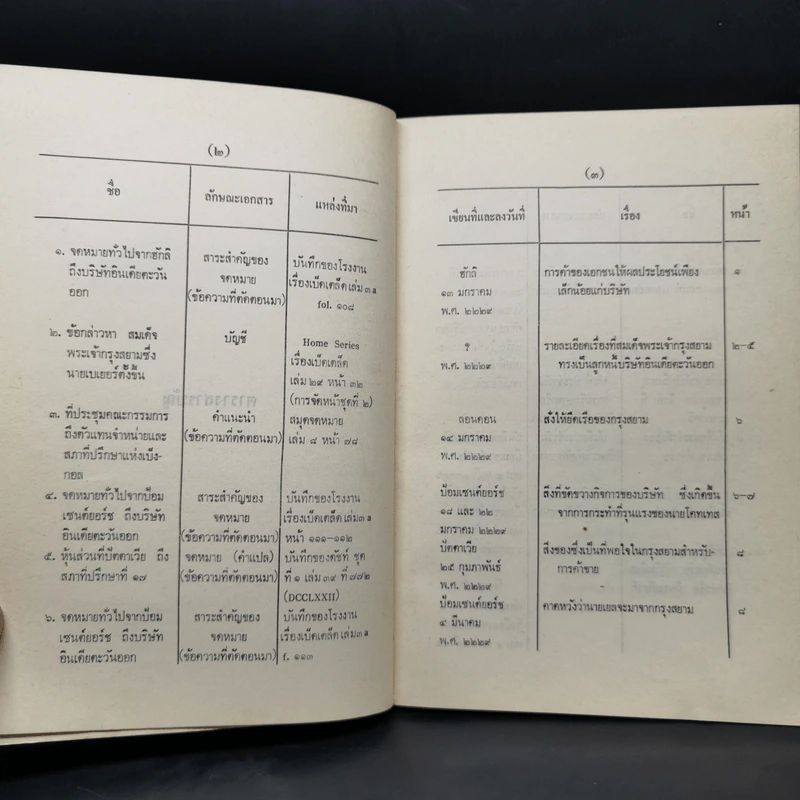 (๒)
ชื่อ
ลักษณะเอกสาร
แหล่งที่มา
๑. จดหมายทั่วไปจากฮักลิ
ถึงบริษัทอินเดียตะวัน
ออก
สาระสำคัญของ
จดหมาย
(ข้อความที่ตัดตอนมา)
บันทึกของโรงงาน
เรื่องเบ็ดเตล็ดเล่ม ๓ a
fol. ๑๐๘
๒. ข้อกล่าวหา สมเด็จ
พระเจ้ากรุงสยามซึ่ง
นายเบเยอร์ตั้งขึ้น
บัญชี
Home Series
เรื่องเบ็ดเตล็ด
เล่ม ๒๙ หน้า ๓๒
(การจัดหน้าชุดที่ ๒)
๓. ที่ประชุมคณะกรรมการ
ถึงตัวแทนจำหน่ายและ
สภาที่ปรึกษาแห่งเบ็ง-
กอล
คำแนะนำ
(ข้อความที่ตัดตอนมา)
สมุดจดหมาย
เล่ม ๘ หน้า ๗๘
๔. จดหมายทั่วไปจากป้อม
เซนต์ยอร์ช ถึงบริษัท
อินเดียตะวันออก
สาระสำคัญของ
จดหมาย
(ข้อความที่ตัดตอนมา)
บันทึกของโรงงาน
เรื่องเบ็ดเตล็ดเล่ม ๓ a
หน้า ๑๑๑–๑๑๒
๕. หุ้นส่วนที่ปัตตาเวีย ถึง
สภาที่ปรึกษาที่ ๑๗
จดหมาย (คำแปล)
(ข้อความที่ตัดตอนมา)
บันทึกดัชท์ ชุด
ที่ ๑ เล่ม ๓๙ ที่ ๗๗๒
(DCCLXXII)
๖. จดหมายทั่วไปจากป้อม
เซนต์ยอร์ช ถึงบริษัท
อินเดียตะวันออก
สาระสำคัญของ
จดหมาย
(ข้อความที่ตัดตอนมา)
บันทึกของโรงงาน
เรื่องเบ็ดเตล็ดเล่ม ๓ a
f. ๑๑๓
(๓)
เขียนที่และลงวันที่
เรื่อง
หน้า
ฮักลิ
๑๓ มกราคม
พ.ศ. ๒๒๒๙
การค้าของเอกชนให้ผลประโยชน์เพียง
เล็กน้อยแก่บริษัท
๑
?
พ.ศ. ๒๒๒๙
รายละเอียดเรื่องที่สมเด็จพระเจ้ากรุงสยาม
ทรงเป็นลูกหนี้บริษัทอินเดียตะวันออก
๒–๕
ลอนดอน
๑๔ มกราคม
พ.ศ. ๒๒๒๙
สั่งให้ยึดเรือของกรุงสยาม
๖
ป้อมเซนต์ยอร์ช
๑๘ และ ๒๒
มกราคม ๒๒๒๙
สิ่งที่ขัดขวางกิจการของบริษัท ซึ่งเกิดขึ้น
จากการกระทำที่รุนแรงของนายโคทเทส
๖–๗
ปัตตาเวีย
๒๕ กุมภาพันธ์
พ.ศ. ๒๒๒๙
สิ่งของซึ่งเป็นที่พอใจในกรุงสยามสำหรับ-
การค้าขาย
๘
ป้อมเซนต์ยอร์ช
๔ มีนาคม
พ.ศ. ๒๒๒๙
คาดหวังว่านายเยลจะมาจากกรุงสยาม
๘